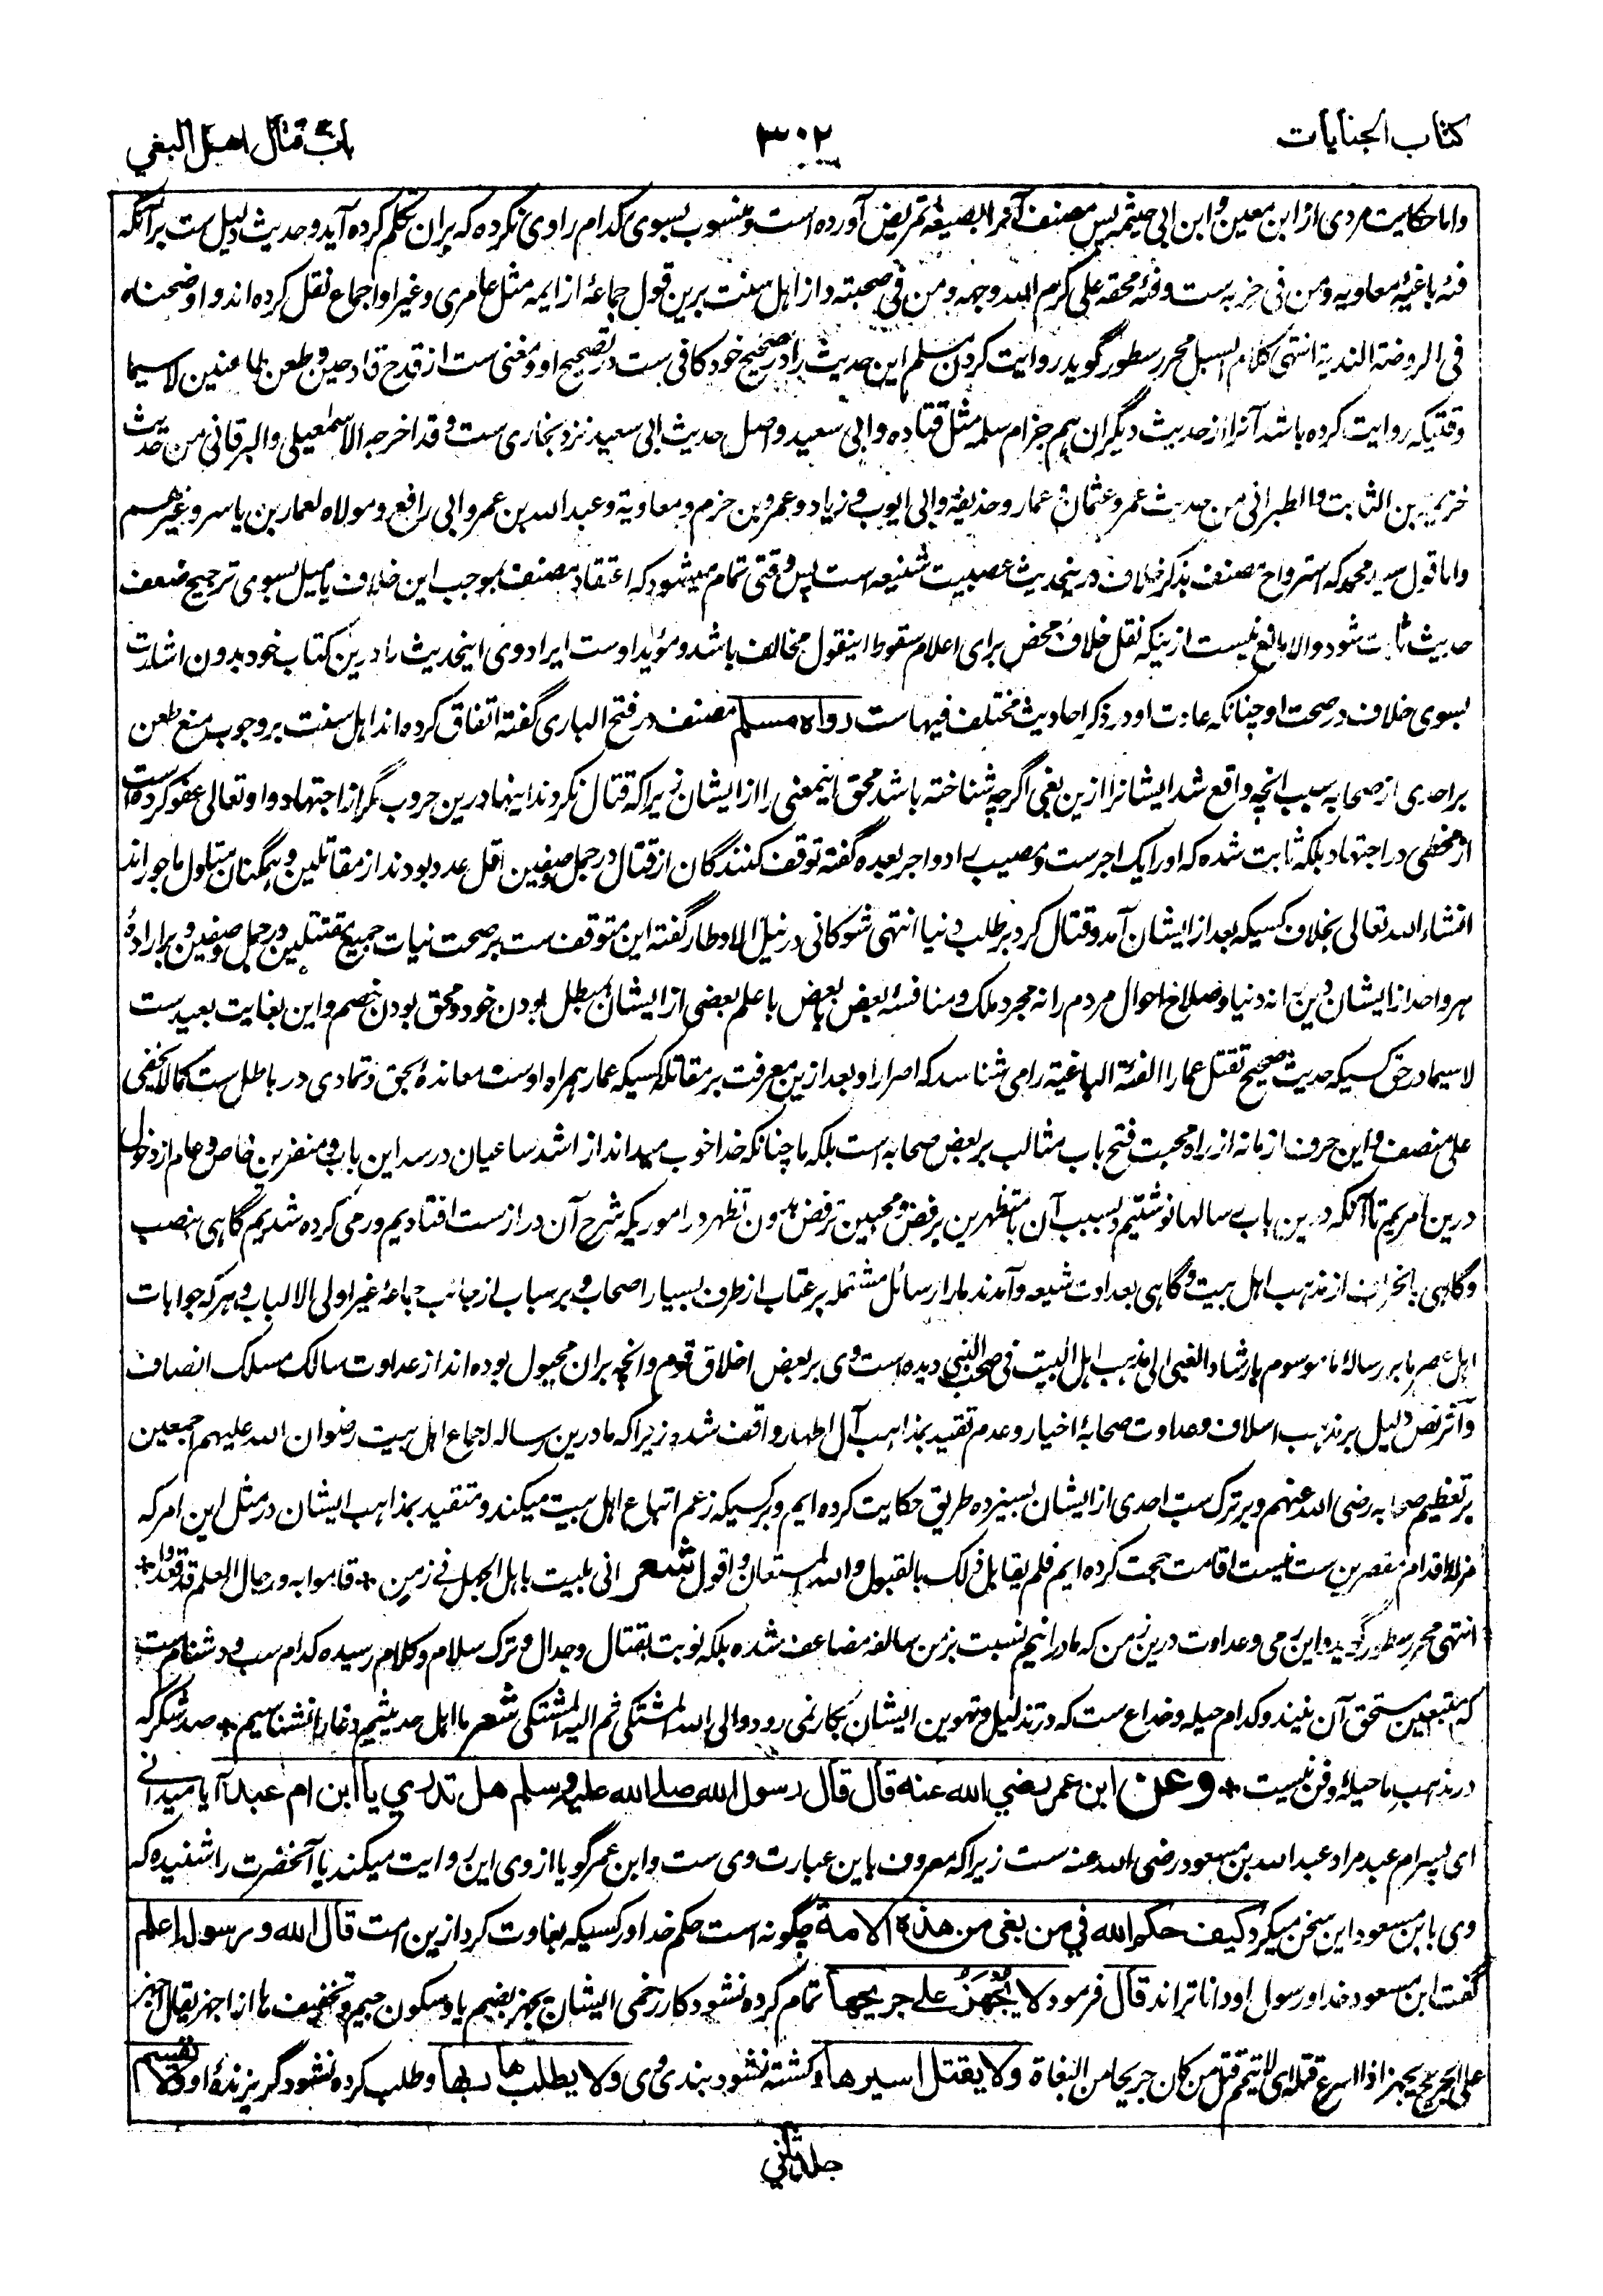 کتاب الجنایات
۳۰۲
باب قتال اهل البغي
واما حکایت مردی از ابن معین و ابن ابی خیثمه پس مصنف آنرا بصیغهٔ تمریض آورده است و منسوب بسوی کدام راوی نکرده که بران تکلم کرده آید و حدیث دلیل ست برآنکه
فئه باغیهٔ معاویه و من فی حزبه ست و فئه محقه علی کرم الله وجهه و من فی صحبته و از اهل سنت برین قول جماعهٔ از ایمه مثل عامری و غیر او اجماع نقل کرده اند و اوضحناه
فی الروضة الندیة انتهی کلام السبل محرر سطور گوید روایت کردن مسلم این حدیث را در صحیح خود کافی ست در تصحیح او و مغنی ست از قدح قادحین و طعن طاعنین لا سیما
وقتیکه روایت کرده باشد آنرا از حدیث دیگران هم جز ام سلمه مثل قتاده و ابی سعید و اصل حدیث ابی سعید نزد بخاری ست و قد اخرجه الاسمعیلی والبرقانی من حدیث
خزیمه بن الثابت و الطبرانی من حدیث عمر و عثمان و عمار و حذیفة و ابی ایوب و زیاد و عمرو بن حزم و معاویة و عبد الله بن عمرو ابی رافع و مولاه لعمار بن یاسر و غیرهم
واما قول سید محمد که استرواح مصنف بذکر خلاف درینحدیث عصبیت شنیعه است پس وقتی تمام میشود که اعتقاد مصنف بموجب این خلاف یا میل بسوی ترجیح ضعف
حدیث ثابت شود والا مانع نیست ازینکه نقل خلاف محض برای اعلام سقوط اینقول مخالف باشد و مؤید اوست ایراد وی اینحدیث را درین کتاب خود بدون اشارت
بسوی خلاف در صحت او چنانکه عادت او در ذکر احادیث مختلف فیهاست رواه مسلم مصنف در فتح الباری گفته اتفاق کرده اند اهل سنت بر وجوب منع طعن
بر احدی از صحابه بسبب انچه واقع شد ایشانرا ازین بغی اگرچه شناخته باشد محق اینمعنی را از ایشان زیرا که قتال نکردند اینها درین حروب مگر از اجتهاد و او تعالی عفو کرده است
از مخطی در اجتهاد بلکه ثابت شده که او را یک اجر ست و مصیب را دو اجر بعده گفته توقف کنندگان از قتال در جمل و صفین اقل عدد بودند از مقاتلین و همگنان متاول ماجور اند
انشاء الله تعالی بخلاف کسیکه بعد از ایشان آمد و قتال کرد بر طلب دنیا انتهی شوکانی در نیل الاوطار گفته این متوقف ست بر صحت نیات جمیع مقتتلین در جمل و صفین و بر ارادهٔ
هر واحد از ایشان دین را نه دنیا و صلاح احوال مردم را نه مجرد ملک و منافسهٔ بعض بعض با علم بعضی از ایشان بمبطل بودن خود و محق بودن خصم و این بغایت بعید ست
لا سیما در حق کسیکه حدیث صحیح تقتل عمارا الفئة الباغیة را می شناسد که اصرار او بعد ازین معرفت بر مقاتله کسیکه عمار همراه اوست معاندهٔ بحق و تمادی در باطل ست کما لا یخفی
علی منصف و این حرف از ما نه از راه محبت فتح باب مثالب بر بعض صحابه است بلکه ما چنانکه خدا خوب میداند از اشد ساعیان در سد این باب و منفرین خاص و عام از دخول
درین امریم تا آنکه درین باب رسالها نوشتیم و بسبب آن با متظهرین برفض و محبین ترفض بدون تظهر در اموریکه شرح آن دراز ست افتادیم و رمی کرده شدیم گاهی بنصب
و گاهی بانحراف از مذهب اهل بیت و گاهی بعداوت شیعه و آمدند ما را رسائل مشتمله بر عتاب از طرف بسیار اصحاب و بر سباب از جانب جماعهٔ غیر اولی الالباب و هر که جوابات
اهل عصر ما بر رسالهٔ ما موسوم بارشاد الغبی الی مذهب اهل البیت فی صحب النبی دیده است وی بر بعض اخلاق قوم و انچه بران مجبول بوده اند از عداوت سالک مسلک انصاف
و آثر نص دلیل بر مذهب اسلاف و عداوت صحابهٔ اخیار و عدم تقید بمذاهب آل اطهار واقف شده زیرا که ما درین رساله اجماع اهل بیت رضوان الله علیهم اجمعین
بر تعظیم صحابه رضی الله عنهم و بر ترک سب احدی از ایشان بسیزده طریق حکایت کرده ایم و بر کسیکه زعم اتباع اهل بیت میکند و متقید بمذاهب ایشان در مثل این امر که
مزلهٔ اقدام مقصرین ست نیست اقامت حجت کرده ایم فلم یقابل ذلک بالقبول والله المستعان و اقول شعر انی بلیت باهل الجهل فی زمن * قاموا به ورجال العلم قد قعدوا *
انتهی محرر سطور گوید و این رمی و عداوت درین زمن که ما درانیم نسبت بزمن سالفه مضاعف شده بلکه نوبت بقتال و جدال و ترک سلام و کلام رسیده کدام سب و دشنام ست
که متبعین مستحق آن نیند و کدام حیله و خداع ست که در تذلیل و تهوین ایشان بکار نمی رود و الی الله المشتکی ثم الیه المشتکی شعر ما اهل حدیثیم دغا را نشناسیم * صد شکر که
در مذهب ما حیله و فن نیست * وعن ابن عمر رضي الله عنه قال قال رسول الله صلی الله علیه وسلم هل تدري یا ابن ام عبد آیا میدانی
ای پسر ام عبد مراد عبد الله بن مسعود رضی الله عنه ست زیرا که معروف باین عبارت وی ست و ابن عمر گویا از وی این روایت میکند یا آنحضرت را شنیده که
وی بابن مسعود این سخن میکرد کیف حکم الله في من بغی من هذه الامة چگونه است حکم خدا در کسیکه بغاوت کرد ازین امت قال الله ورسوله اعلم
گفت ابن مسعود خدا و رسول او داناتر اند قال فرمود لا یُجْهَزُ علی جریحها تمام کرده نشود کار زخمی ایشان یجهز بضیم یا و سکون جیم و تخفیف ها از اجهز یقال اجهز
علی الجریح یجهز اذا اسرع قتله ای لا یتمم قتل من کان جریحا من البغاة ولا یقتل اسیرها و کشته نشود بندی وی ولا یطلب هاربها و طلب کرده نشود گریزندهٔ او ولا یقسم
جلد ثاني